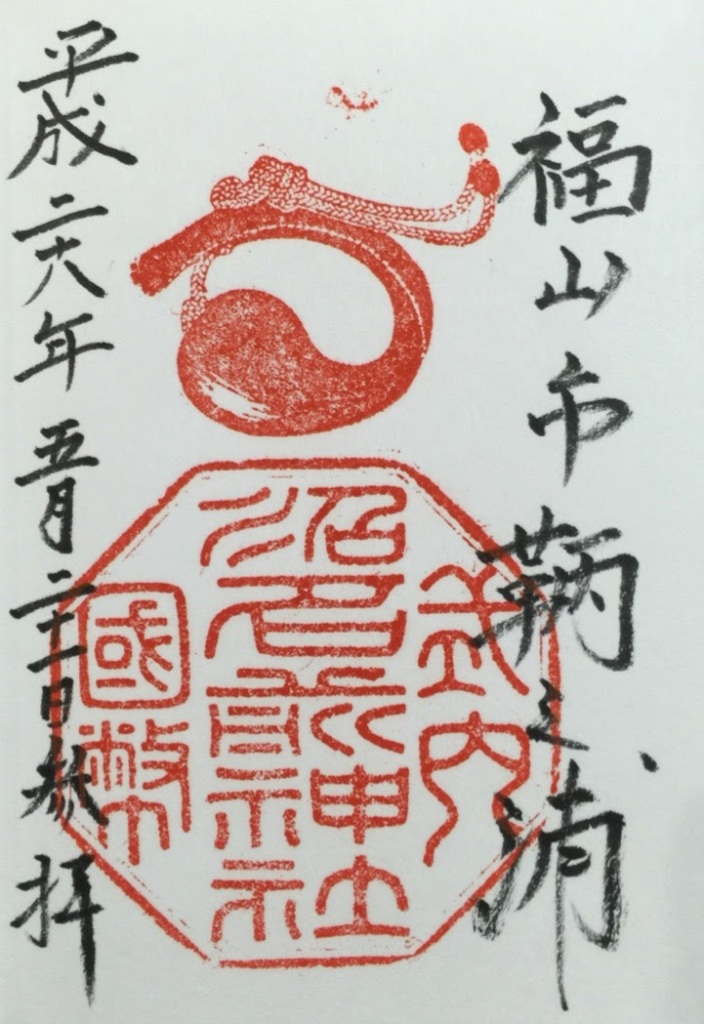 福山市鞆之浦
式内
沼名前神社
國幣
平成二六年五月二十一日参拝